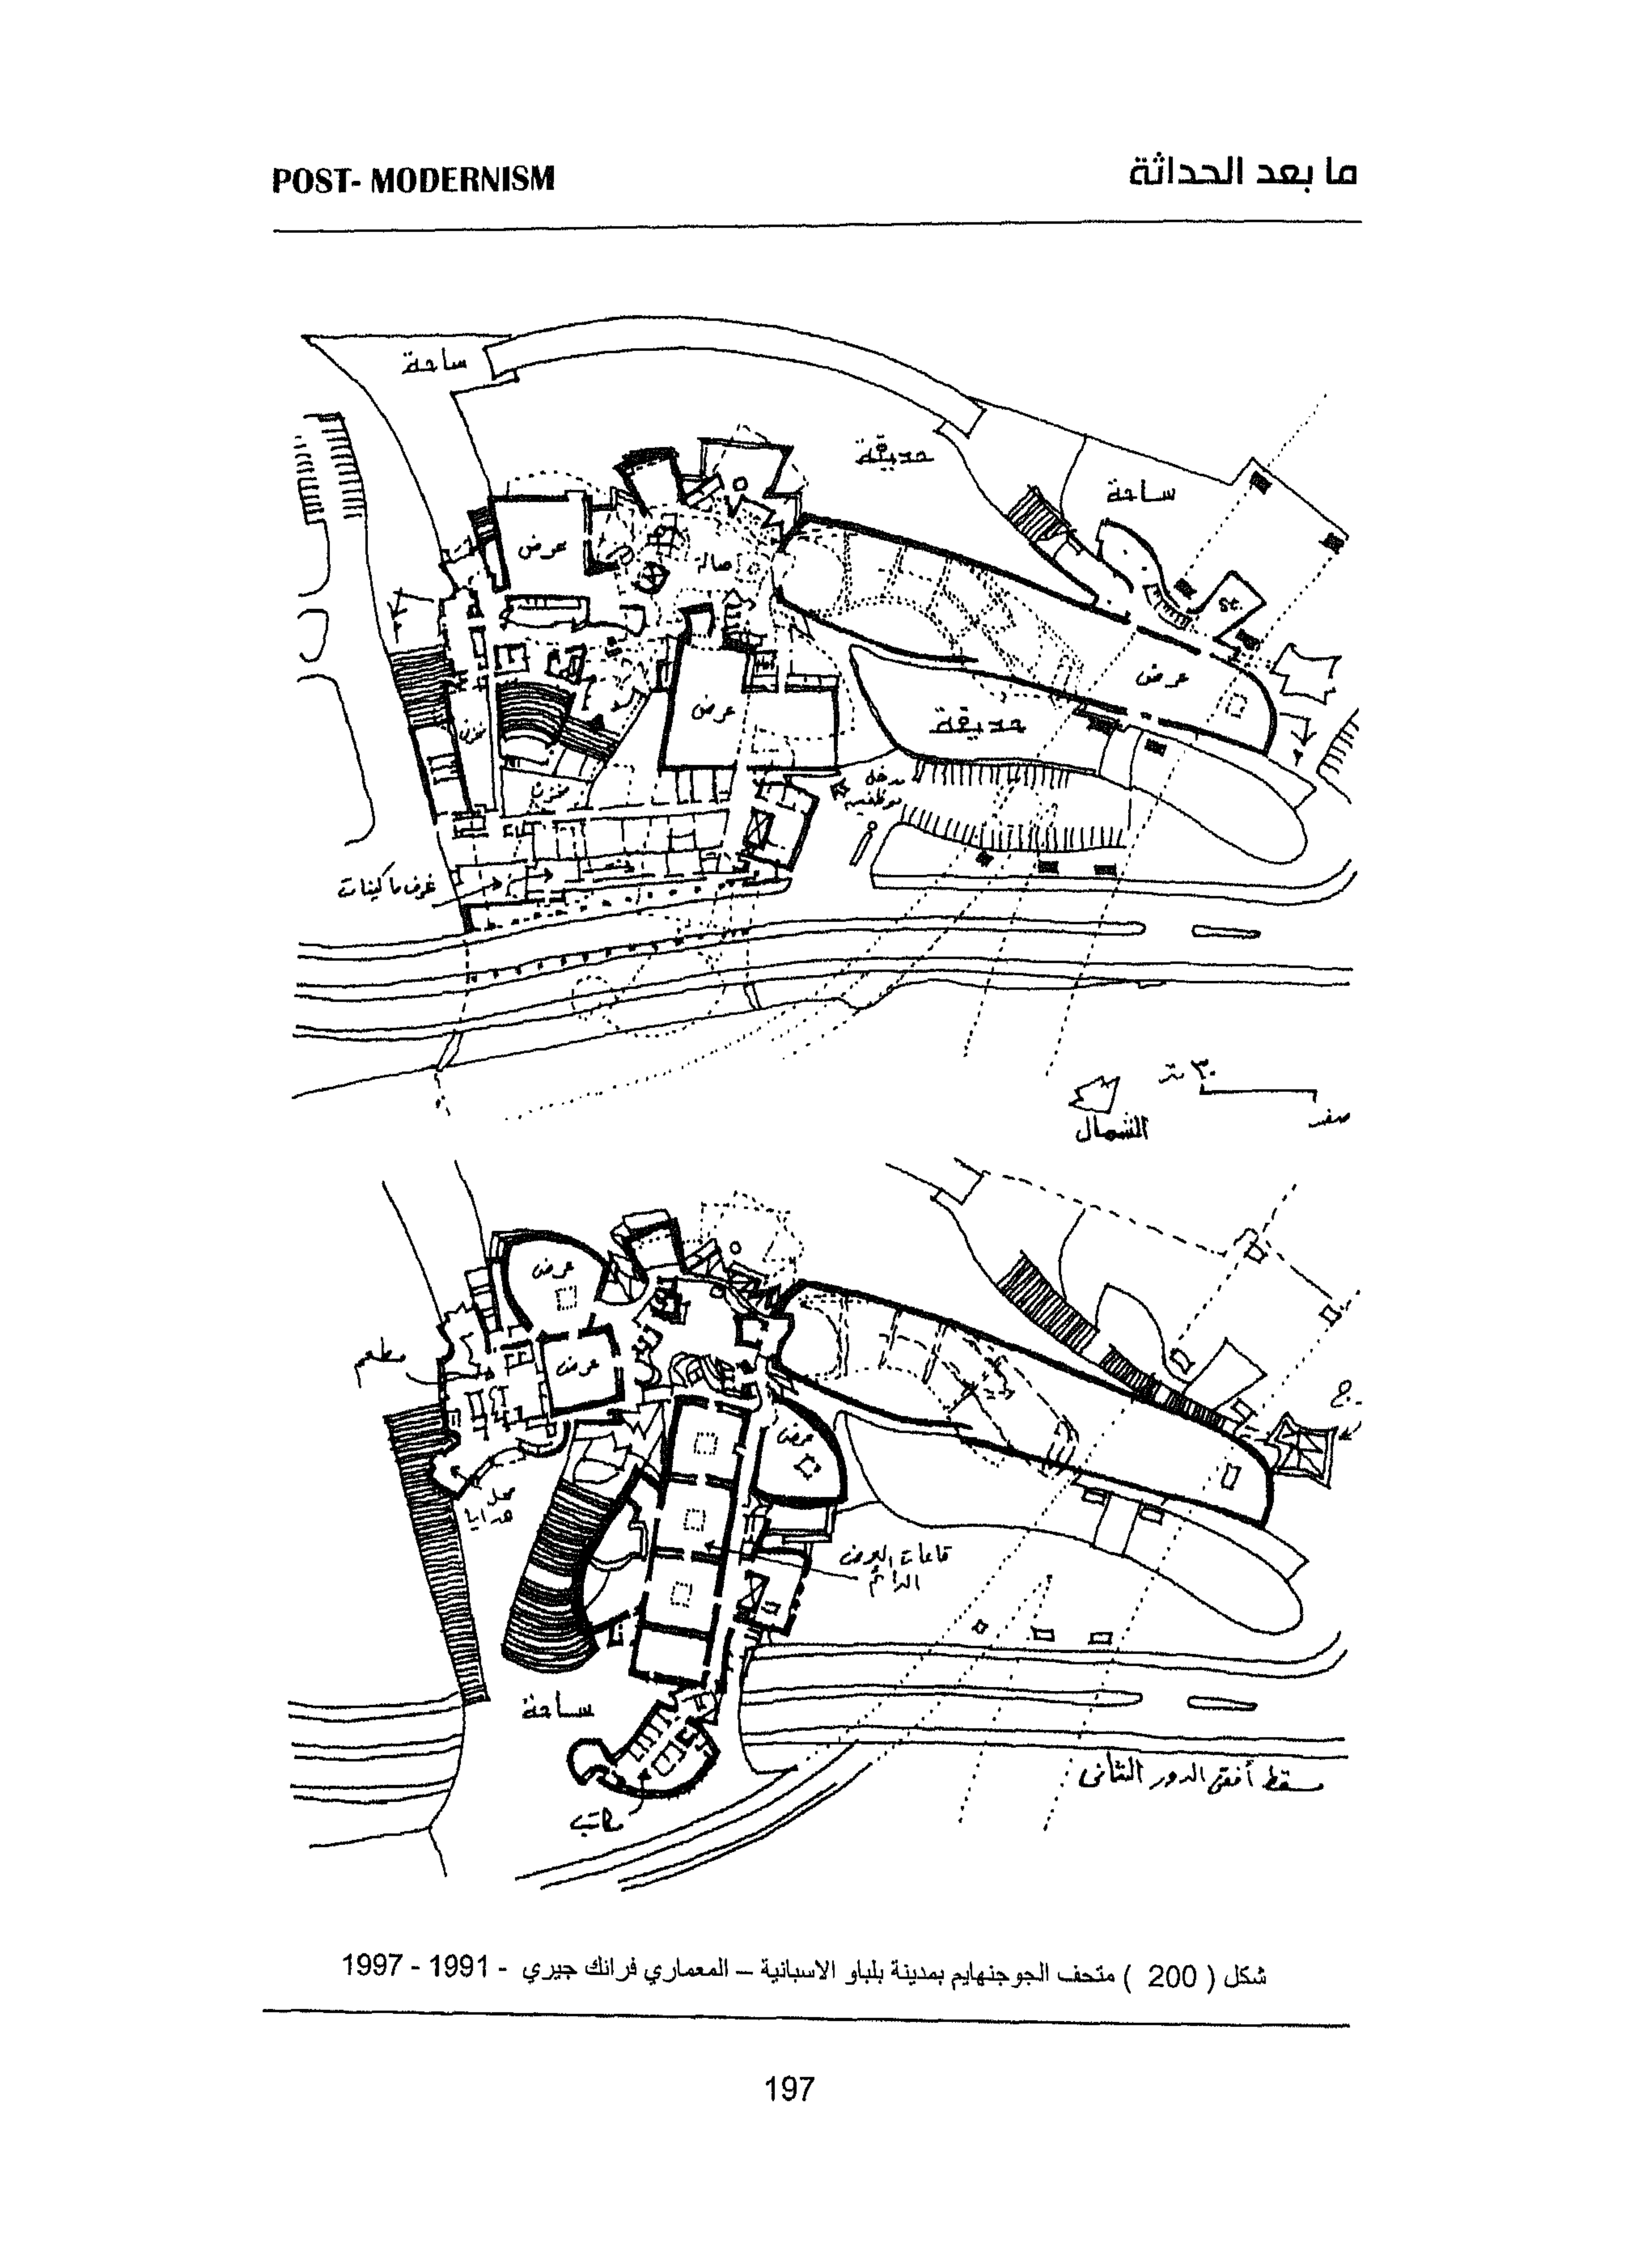 POST- MODERNISM
ما بعد الحداثة
ساحة
حديقة
ساحة
عرض
صالة
st.
عرض
عرض
حديقة
مخزن
مخزن
مدخل
موظفين
غرف ماكينات
٣٠ متر
صفر
الشمال
عرض
مطعم
عرض
عرض
محل
هدايا
قاعات العرض
الدائم
ساحة
مكاتب
مسقط أفقى الدور الثانى
شكل ( 200 ) متحف الجوجنهايم بمدينة بلباو الاسبانية – المعماري فرانك جيري - 1991 - 1997
197